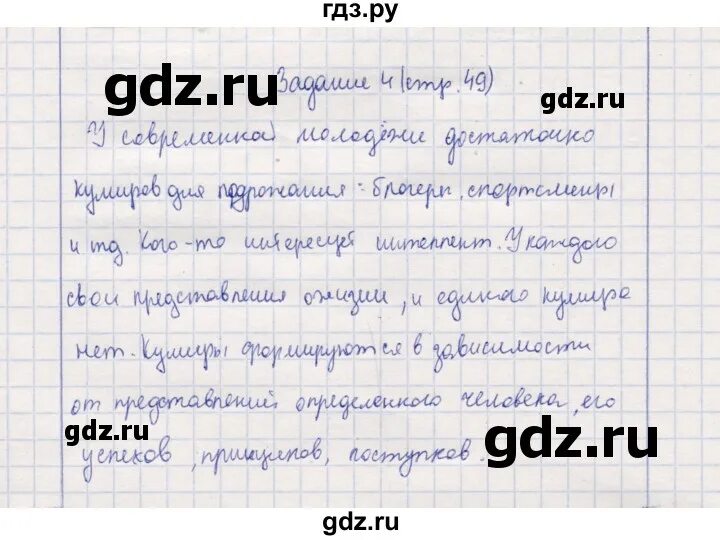 гдз.ру
gdz.ru
gdz.ru
Задание 4 (стр. 49)
У современной молодёжи достаточно
кумиров для подрожания: блогеры, спортсмены
и тд. Кого-то интересует интеллект. У каждого
свои представления о жизни, и единого кумира
нет. Кумиры формируются в зависимости
от представлений определенного человека, его
успехов, принципов, поступков.
gdz.ru
gdz.ru
gdz.ru